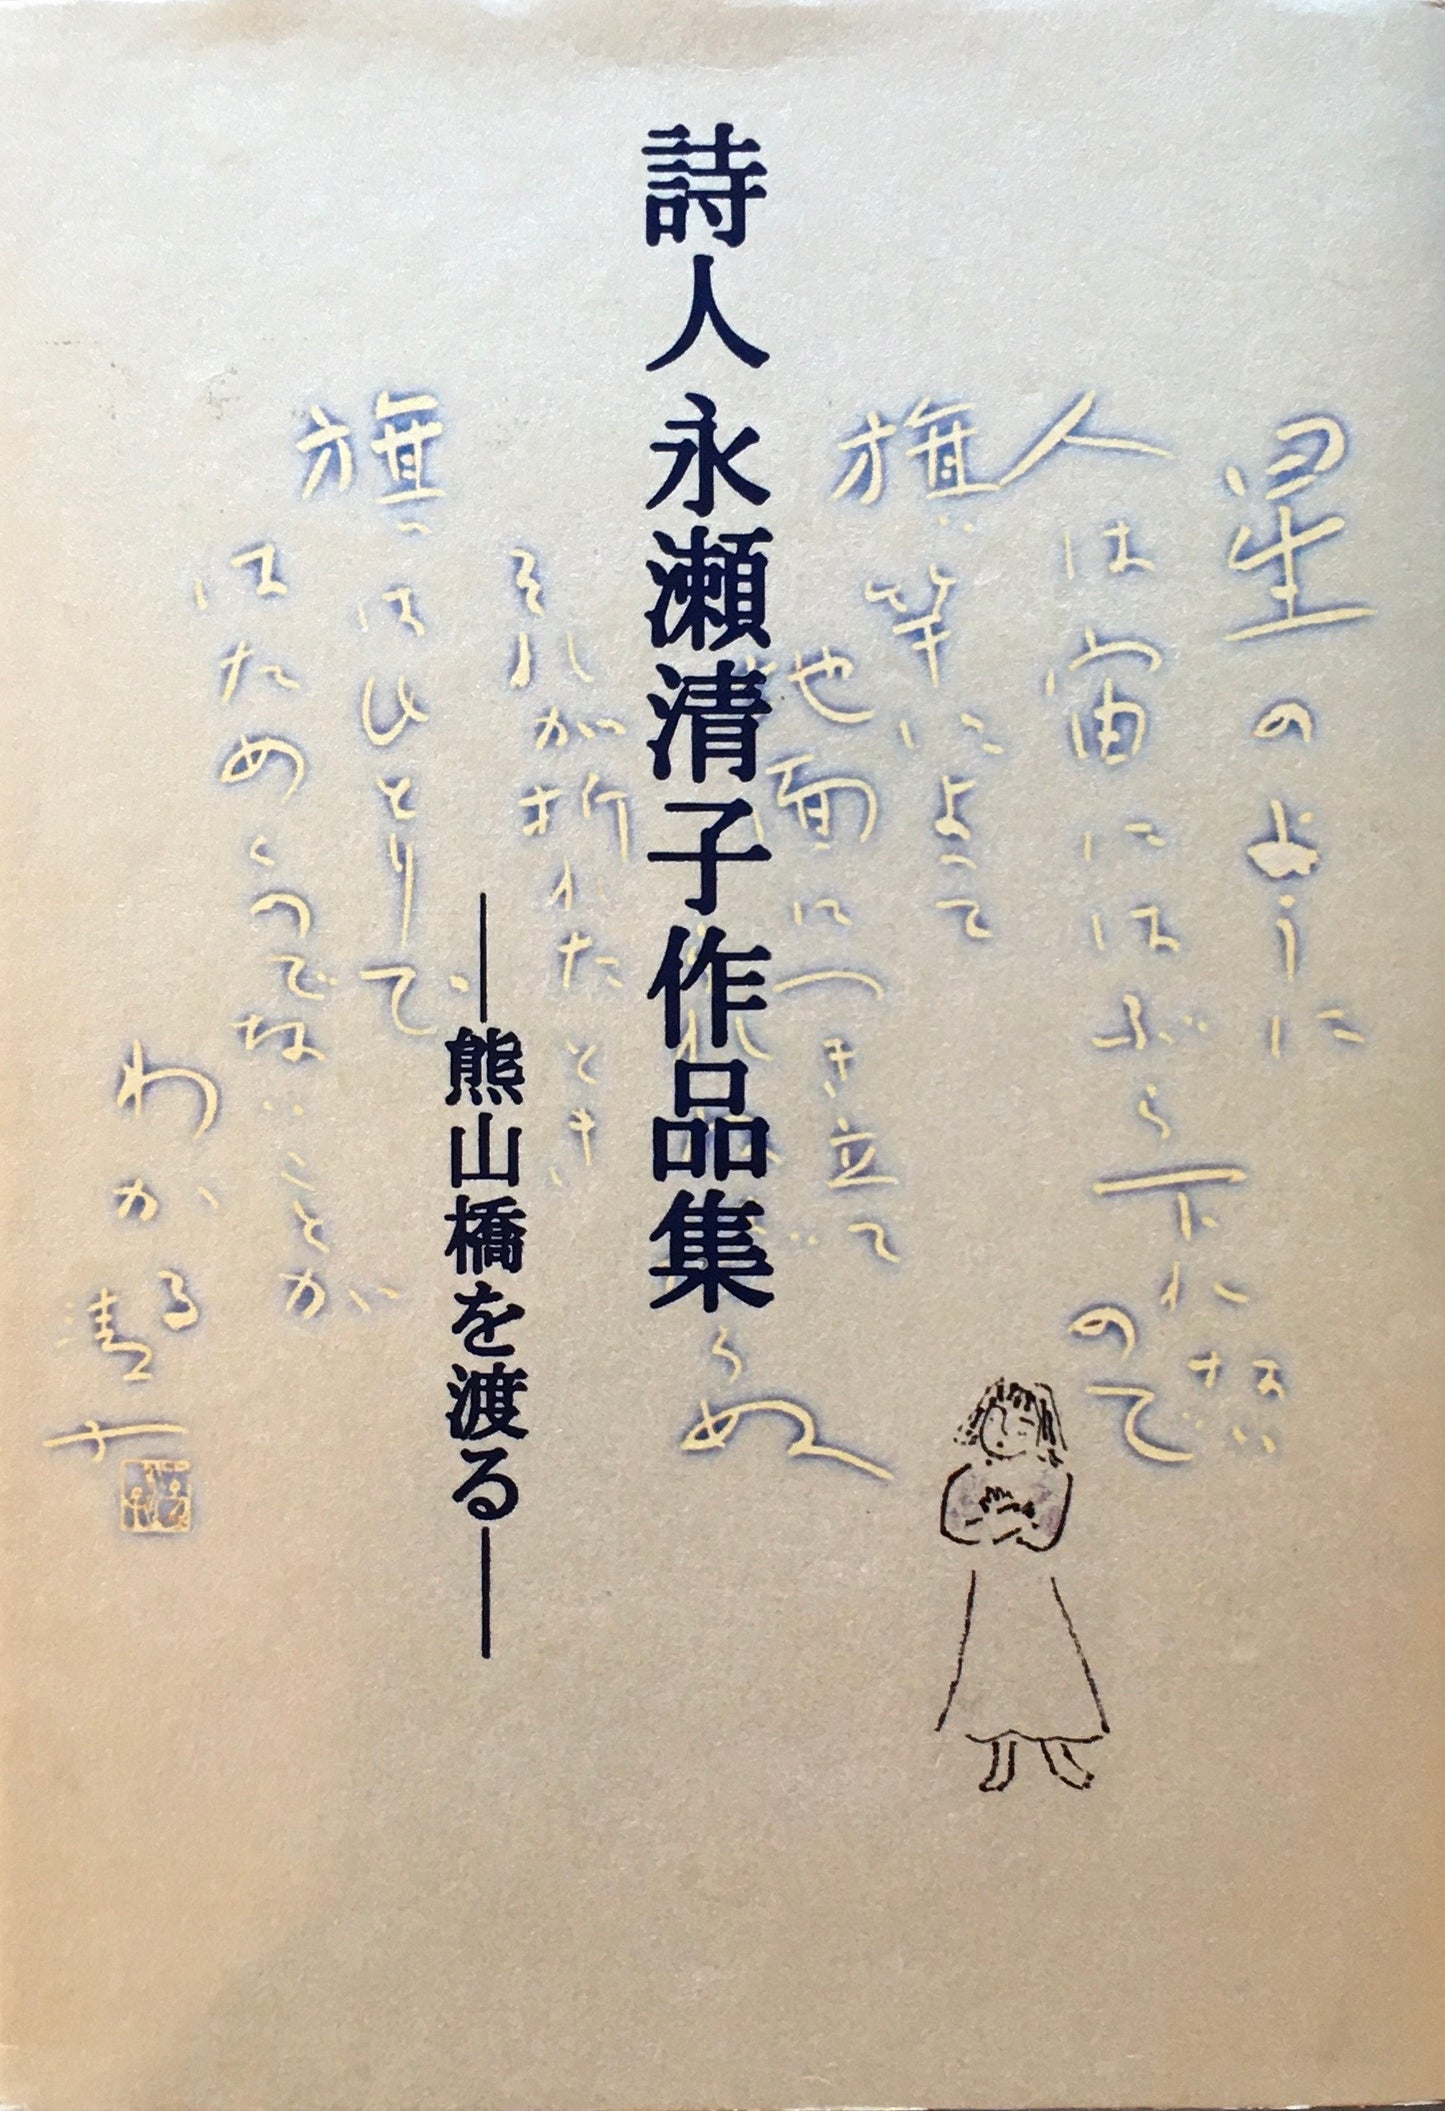 詩人永瀬清子作品集
―熊山橋を渡る―
星のように
人は宙にはぶら下れない
ので
旗竿によって
地面につき立て
らぬ
それが折れたとき
旗はひとりで
はためくのでないことが
わかる
清子